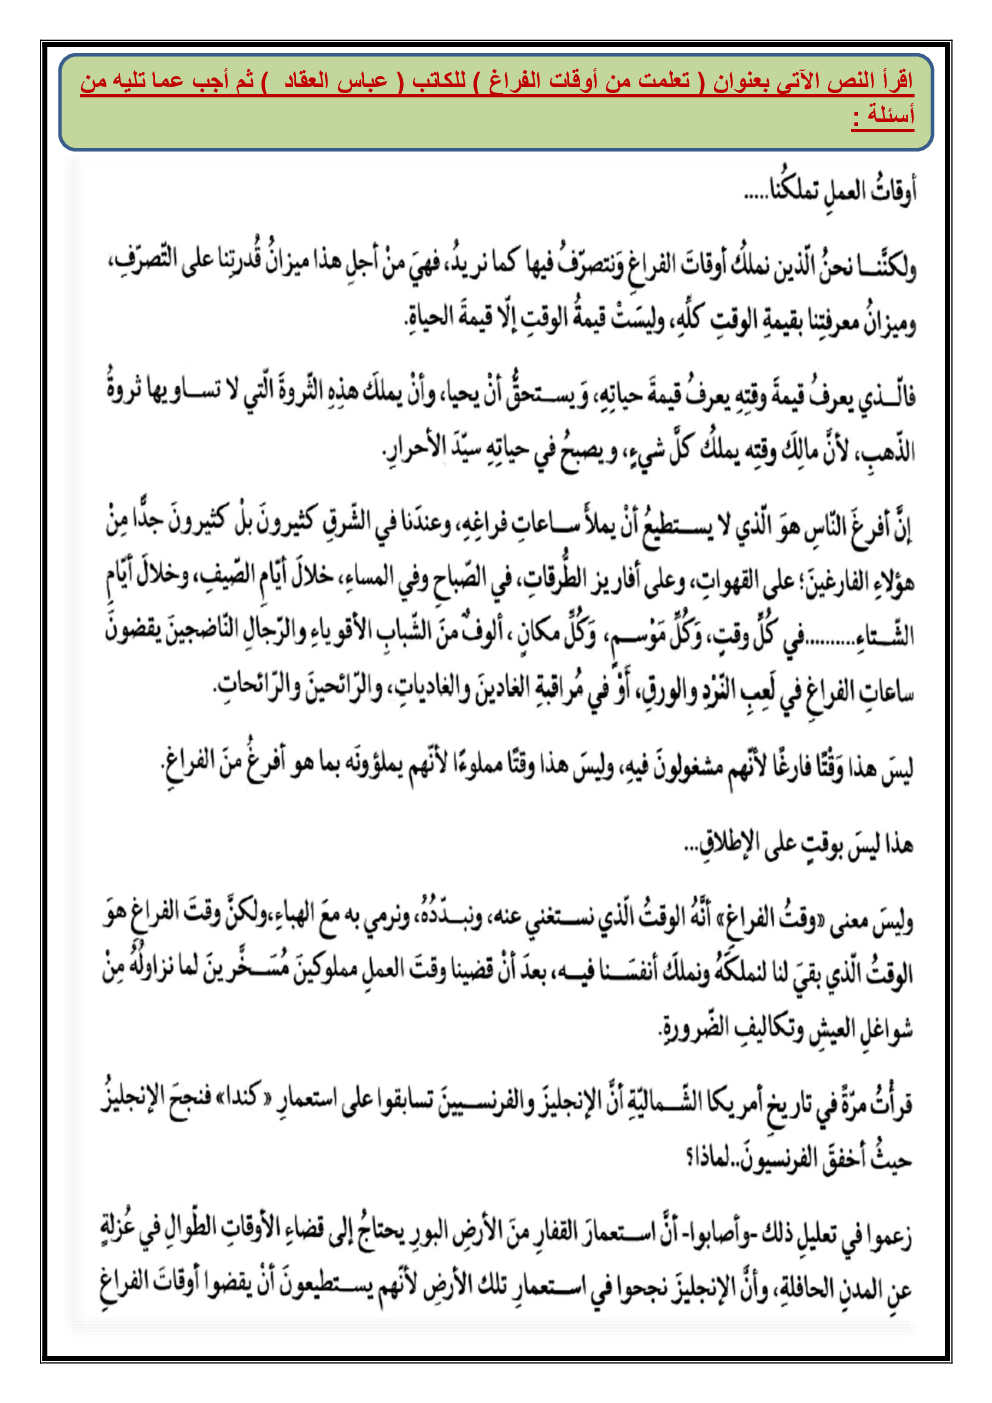 اقرأ النص الآتي بعنوان ( تعلمت من أوقات الفراغ ) للكاتب ( عباس العقاد ) ثم أجب عما تليه من
أسئلة :
أوقاتُ العملِ تملكُنا.....
ولكنَّنا نحنُ الّذين نملكُ أوقاتَ الفراغِ وَنتصرّفُ فيها كما نريدُ، فهيَ منْ أجلِ هذا ميزانُ قُدرتِنا على التّصرّفِ،
وميزانُ معرفتِنا بقيمةِ الوقتِ كلِّهِ، وليسَتْ قيمةُ الوقتِ إلّا قيمةَ الحياةِ.
فالّذي يعرفُ قيمةَ وقتِهِ يعرفُ قيمةَ حياتِهِ، وَيستحقُّ أنْ يحيا، وأنْ يملكَ هذِهِ الثّروةَ الّتي لا تساويها ثروةُ
الذّهبِ، لأنَّ مالِكَ وقتِه يملكُ كلَّ شيءٍ، ويصبحُ في حياتِهِ سيّدَ الأحرارِ.
إنَّ أفرغَ النّاسِ هوَ الّذي لا يستطيعُ أنْ يملأَ ساعاتِ فراغِهِ، وعندَنا في الشّرقِ كثيرونَ بلْ كثيرونَ جدًّا مِنْ
هؤلاءِ الفارغينَ؛ على القهواتِ، وعلى أفاريز الطُّرقاتِ، في الصّباحِ وفي المساءِ، خلالَ أيّامِ الصّيفِ، وخلالَ أيّامِ
الشّتاءِ..........في كُلِّ وقتٍ، وَكُلِّ مَوْسمٍ، وَكُلِّ مكانٍ ، ألوفٌ منَ الشّبابِ الأقوياءِ والرّجالِ النّاضجينَ يقضونَ
ساعاتِ الفراغِ في لَعِبِ النّرْدِ والورقِ، أَوْ في مُراقبةِ الغادينَ والغادياتِ، والرّائحينَ والرّائحاتِ.
ليسَ هذا وَقْتًا فارغًا لأنّهم مشغولونَ فيهِ، وليسَ هذا وقتًا مملوءًا لأنّهم يملؤونَه بما هو أفرغُ منَ الفراغِ.
هذا ليسَ بوقتٍ على الإطلاقِ...
وليسَ معنى «وقتُ الفراغِ» أنَّهُ الوقتُ الّذي نستغني عنه، ونبدّدُهُ، ونرمي به معَ الهباءِ،ولكنَّ وقتَ الفراغِ هوَ
الوقتُ الّذي بقيَ لنا لنملكَهُ ونملكَ أنفسَنا فيه، بعدَ أنْ قضينا وقتَ العملِ مملوكينَ مُسَخَّرينَ لما نزاولُهُ مِنْ
شواغلِ العيشِ وتكاليفِ الضّرورةِ.
قرأْتُ مرّةً في تاريخِ أمريكا الشّماليّةِ أنَّ الإنجليزَ والفرنسيينَ تسابقوا على استعمارِ «كندا» فنجحَ الإنجليزُ
حيثُ أخفقَ الفرنسيونَ..لماذا؟
زعموا في تعليلِ ذلك -وأصابوا- أنَّ استعمارَ القفارِ منَ الأرضِ البورِ يحتاجُ إلى قضاءِ الأوقاتِ الطّوالِ في عُزلةٍ
عنِ المدنِ الحافلةِ، وأنَّ الإنجليزَ نجحوا في استعمارِ تلك الأرضِ لأنّهم يستطيعونَ أنْ يقضوا أوقاتَ الفراغِ